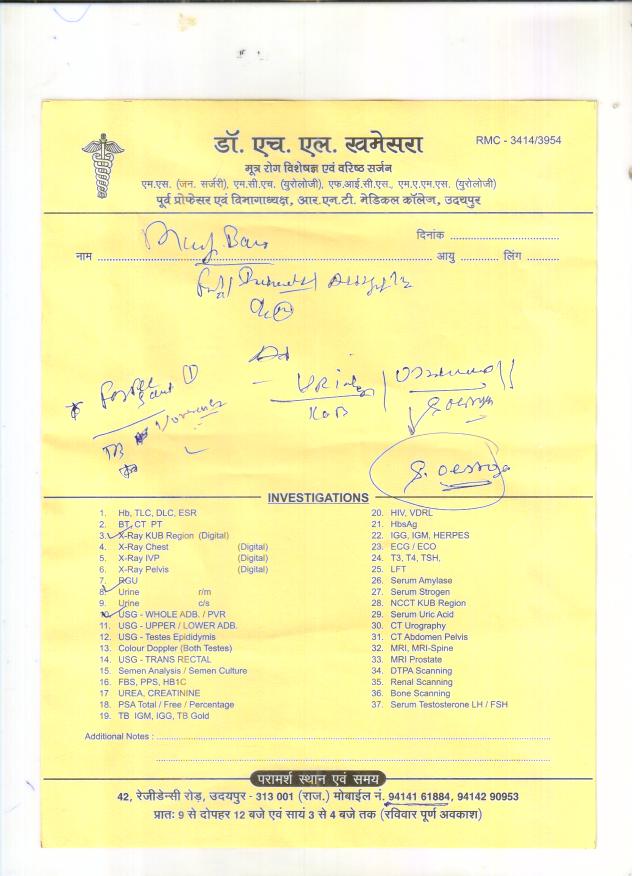 डॉ. एच. एल. खमेसरा
RMC - 3414/3954
मूत्र रोग विशेषज्ञ एवं वरिष्ठ सर्जन
एम.एस. (जन. सर्जरी), एम.सी.एच. (युरोलोजी), एफ.आई.सी.एस., एम.ए.एम.एस. (युरोलोजी)
पूर्व प्रोफेसर एवं विभागाध्यक्ष, आर.एन.टी. मेडिकल कॉलेज, उदयपुर
दिनांक
नाम आयु लिंग
INVESTIGATIONS
1. Hb, TLC, DLC, ESR
2. BT, CT PT
3. X-Ray KUB Region (Digital)
4. X-Ray Chest (Digital)
5. X-Ray IVP (Digital)
6. X-Ray Pelvis (Digital)
7. RGU
8. Urine r/m
9. Urine c/s
10. USG - WHOLE ADB. / PVR
11. USG - UPPER / LOWER ADB.
12. USG - Testes Epididymis
13. Colour Doppler (Both Testes)
14. USG - TRANS RECTAL
15. Semen Analysis / Semen Culture
16. FBS, PPS, HB1C
17. UREA, CREATININE
18. PSA Total / Free / Percentage
19. TB IGM, IGG, TB Gold
20. HIV, VDRL
21. HbsAg
22. IGG, IGM, HERPES
23. ECG / ECO
24. T3, T4, TSH,
25. LFT
26. Serum Amylase
27. Serum Strogen
28. NCCT KUB Region
29. Serum Uric Acid
30. CT Urography
31. CT Abdomen Pelvis
32. MRI, MRI-Spine
33. MRI Prostate
34. DTPA Scanning
35. Renal Scanning
36. Bone Scanning
37. Serum Testosterone LH / FSH
Additional Notes :
परामर्श स्थान एवं समय
42, रेजीडेन्सी रोड़, उदयपुर - 313 001 (राज.) मोबाईल नं. 94141 61884, 94142 90953
प्रातः 9 से दोपहर 12 बजे एवं सायं 3 से 4 बजे तक (रविवार पूर्ण अवकाश)